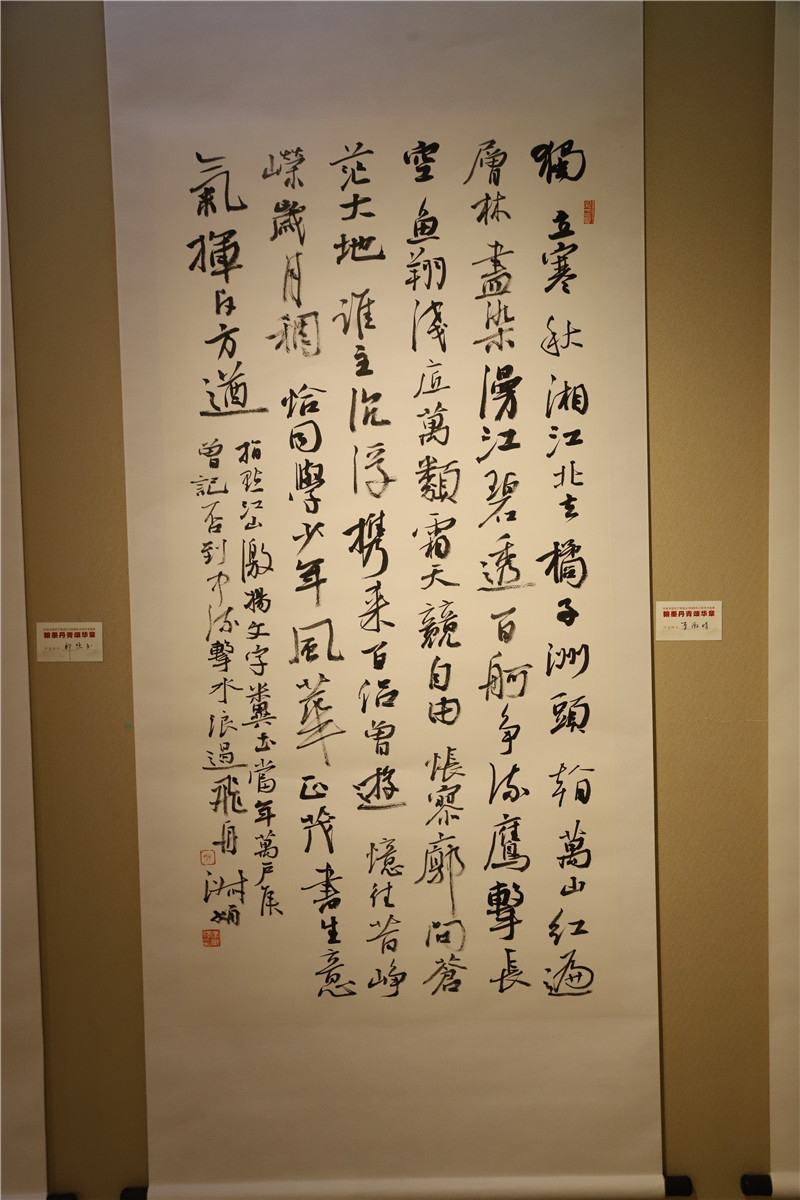 獨立寒秋湘江北去橘子洲頭看萬山紅遍
層林盡染漫江碧透百舸争流鷹擊長
空鱼翔淺底萬類霜天競自由悵寥廓問蒼
茫大地誰主沉浮携来百侣曾遊憶往昔崢
嶸歲月稠恰同學少年風華正茂書生意
氣揮斥方遒
指點江山激揚文字糞土當年萬户侯
曾記否到中流擊水浪遏飛舟
翰墨丹青颂华章
翰墨丹青颂华章